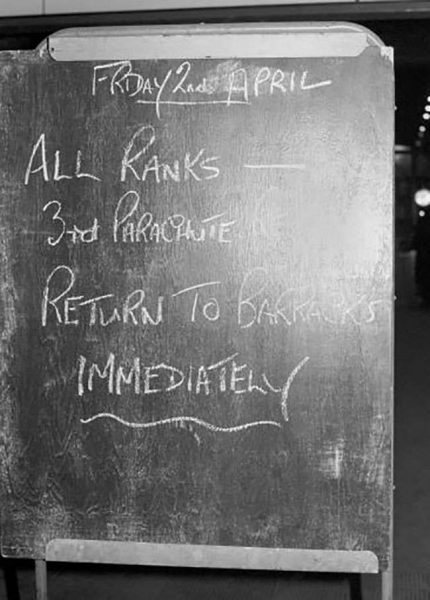 FRIDAY 2nd APRIL
ALL RANKS —
3rd PARACHUTE
RETURN TO BARRACKS
IMMEDIATELY